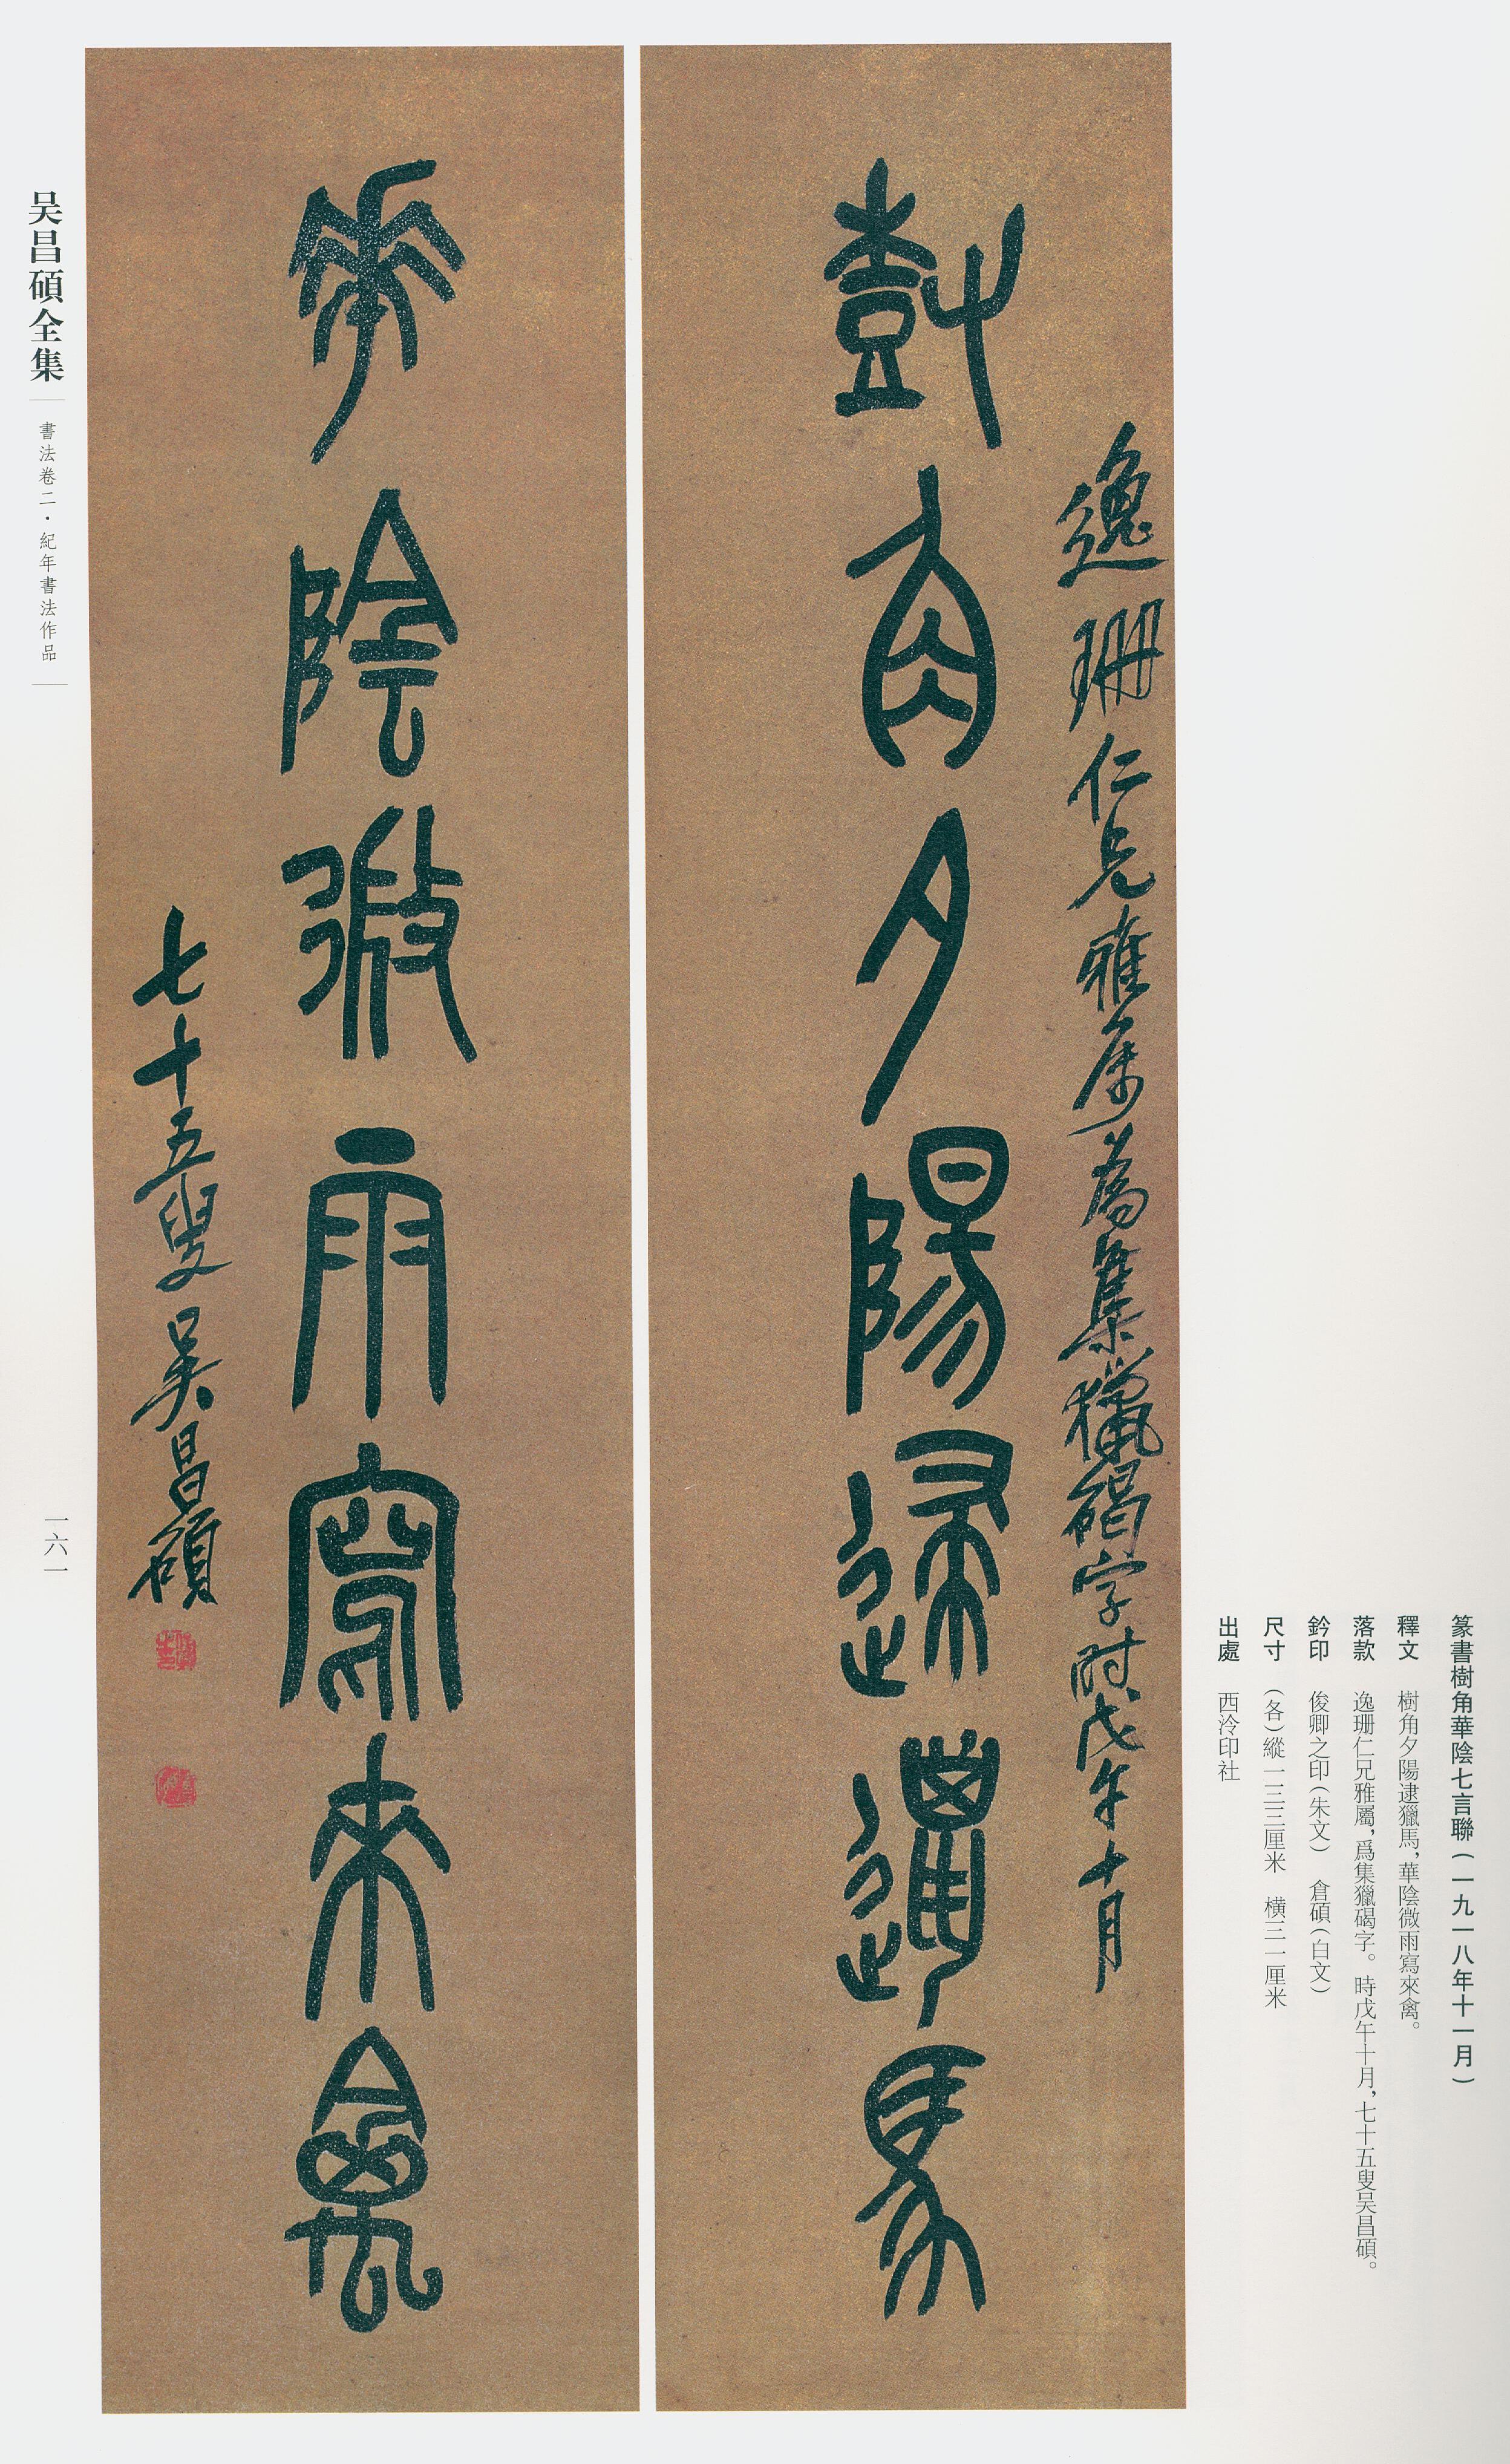 篆書樹角華陰七言聯（一九一八年十一月）
釋文　樹角夕陽逮獵馬，華陰微雨寫來禽。
落款　逸珊仁兄雅屬，爲集獵碣字。時戊午十月，七十五叟吴昌碩。
鈐印　俊卿之印（朱文）　倉碩（白文）
尺寸　（各）縱一三三厘米　横三一厘米
出處　西泠印社
逸珊仁兄雅屬爲集獵碣字時戊午十月
樹角夕陽歸獵馬
華陰微雨寫來禽
七十五叟吴昌碩
俊卿之印
倉碩
吴昌碩全集
書法卷二·紀年書法作品
一六一